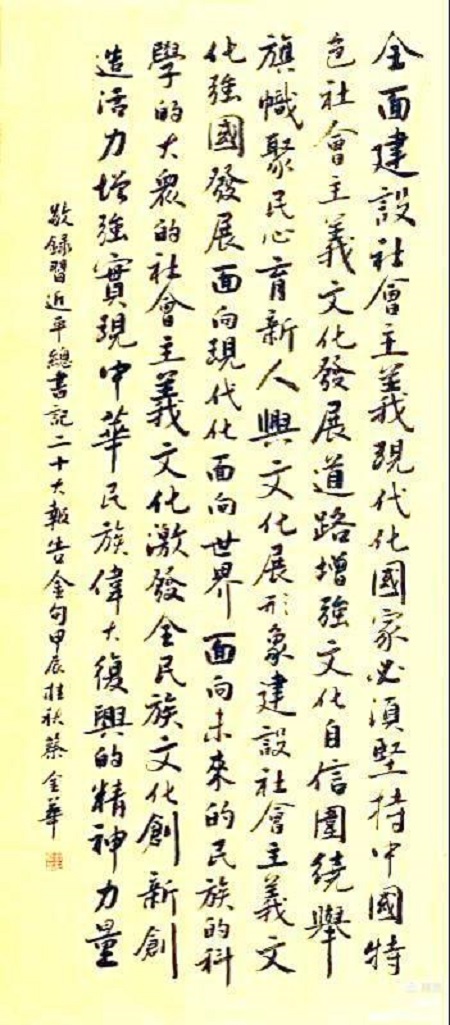 全面建設社會主義現代化國家必須堅持中國特
色社會主義文化發展道路增強文化自信圍繞舉
旗幟聚民心育新人興文化展形象建設社會主義文
化強國發展面向現代化面向世界面向未來的民族的科
學的大衆的社會主義文化激發全民族文化創新創
造活力增強實現中華民族偉大復興的精神力量
敬錄習近平總書記二十大報告金句甲辰桂秋蔡金華